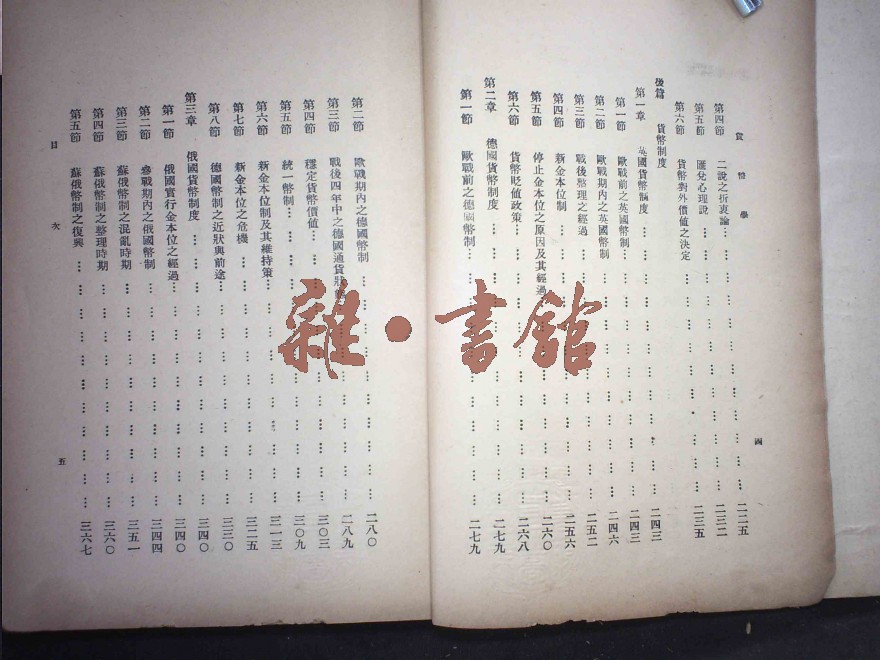 貨幣學
四
第四節 二說之折衷論 二二五
第五節 匯兌心理說 二三二
第六節 貨幣對外價値之決定 二三五
後篇 貨幣制度
第一章 英國貨幣制度 二四三
第一節 歐戰前之英國幣制 二四三
第二節 歐戰期內之英國幣制 二四六
第三節 戰後整理之經過 二五二
第四節 新金本位制 二五六
第五節 停止金本位之原因及其經過 二六〇
第六節 貨幣貶値政策 二六八
第二章 德國貨幣制度 二七九
第一節 歐戰前之德國幣制 二七九
第二節 歐戰期內之德國幣制 二八〇
第三節 戰後四年中之德國通貨狀 二八九
第四節 穩定貨幣價値 三〇三
第五節 統一幣制 三〇九
第六節 新金本位制及其維持策 三一三
第七節 新金本位之危機 三二五
第八節 德國幣制之近狀與前途 三三〇
第三章 俄國貨幣制度 三四〇
第一節 俄國實行金本位之經過 三四〇
第二節 參戰期內之俄國幣制 三四四
第三節 蘇俄幣制之混亂時期 三五一
第四節 蘇俄幣制之整理時期 三六〇
第五節 蘇俄幣制之復興 三六七
目次
五
雜・書館